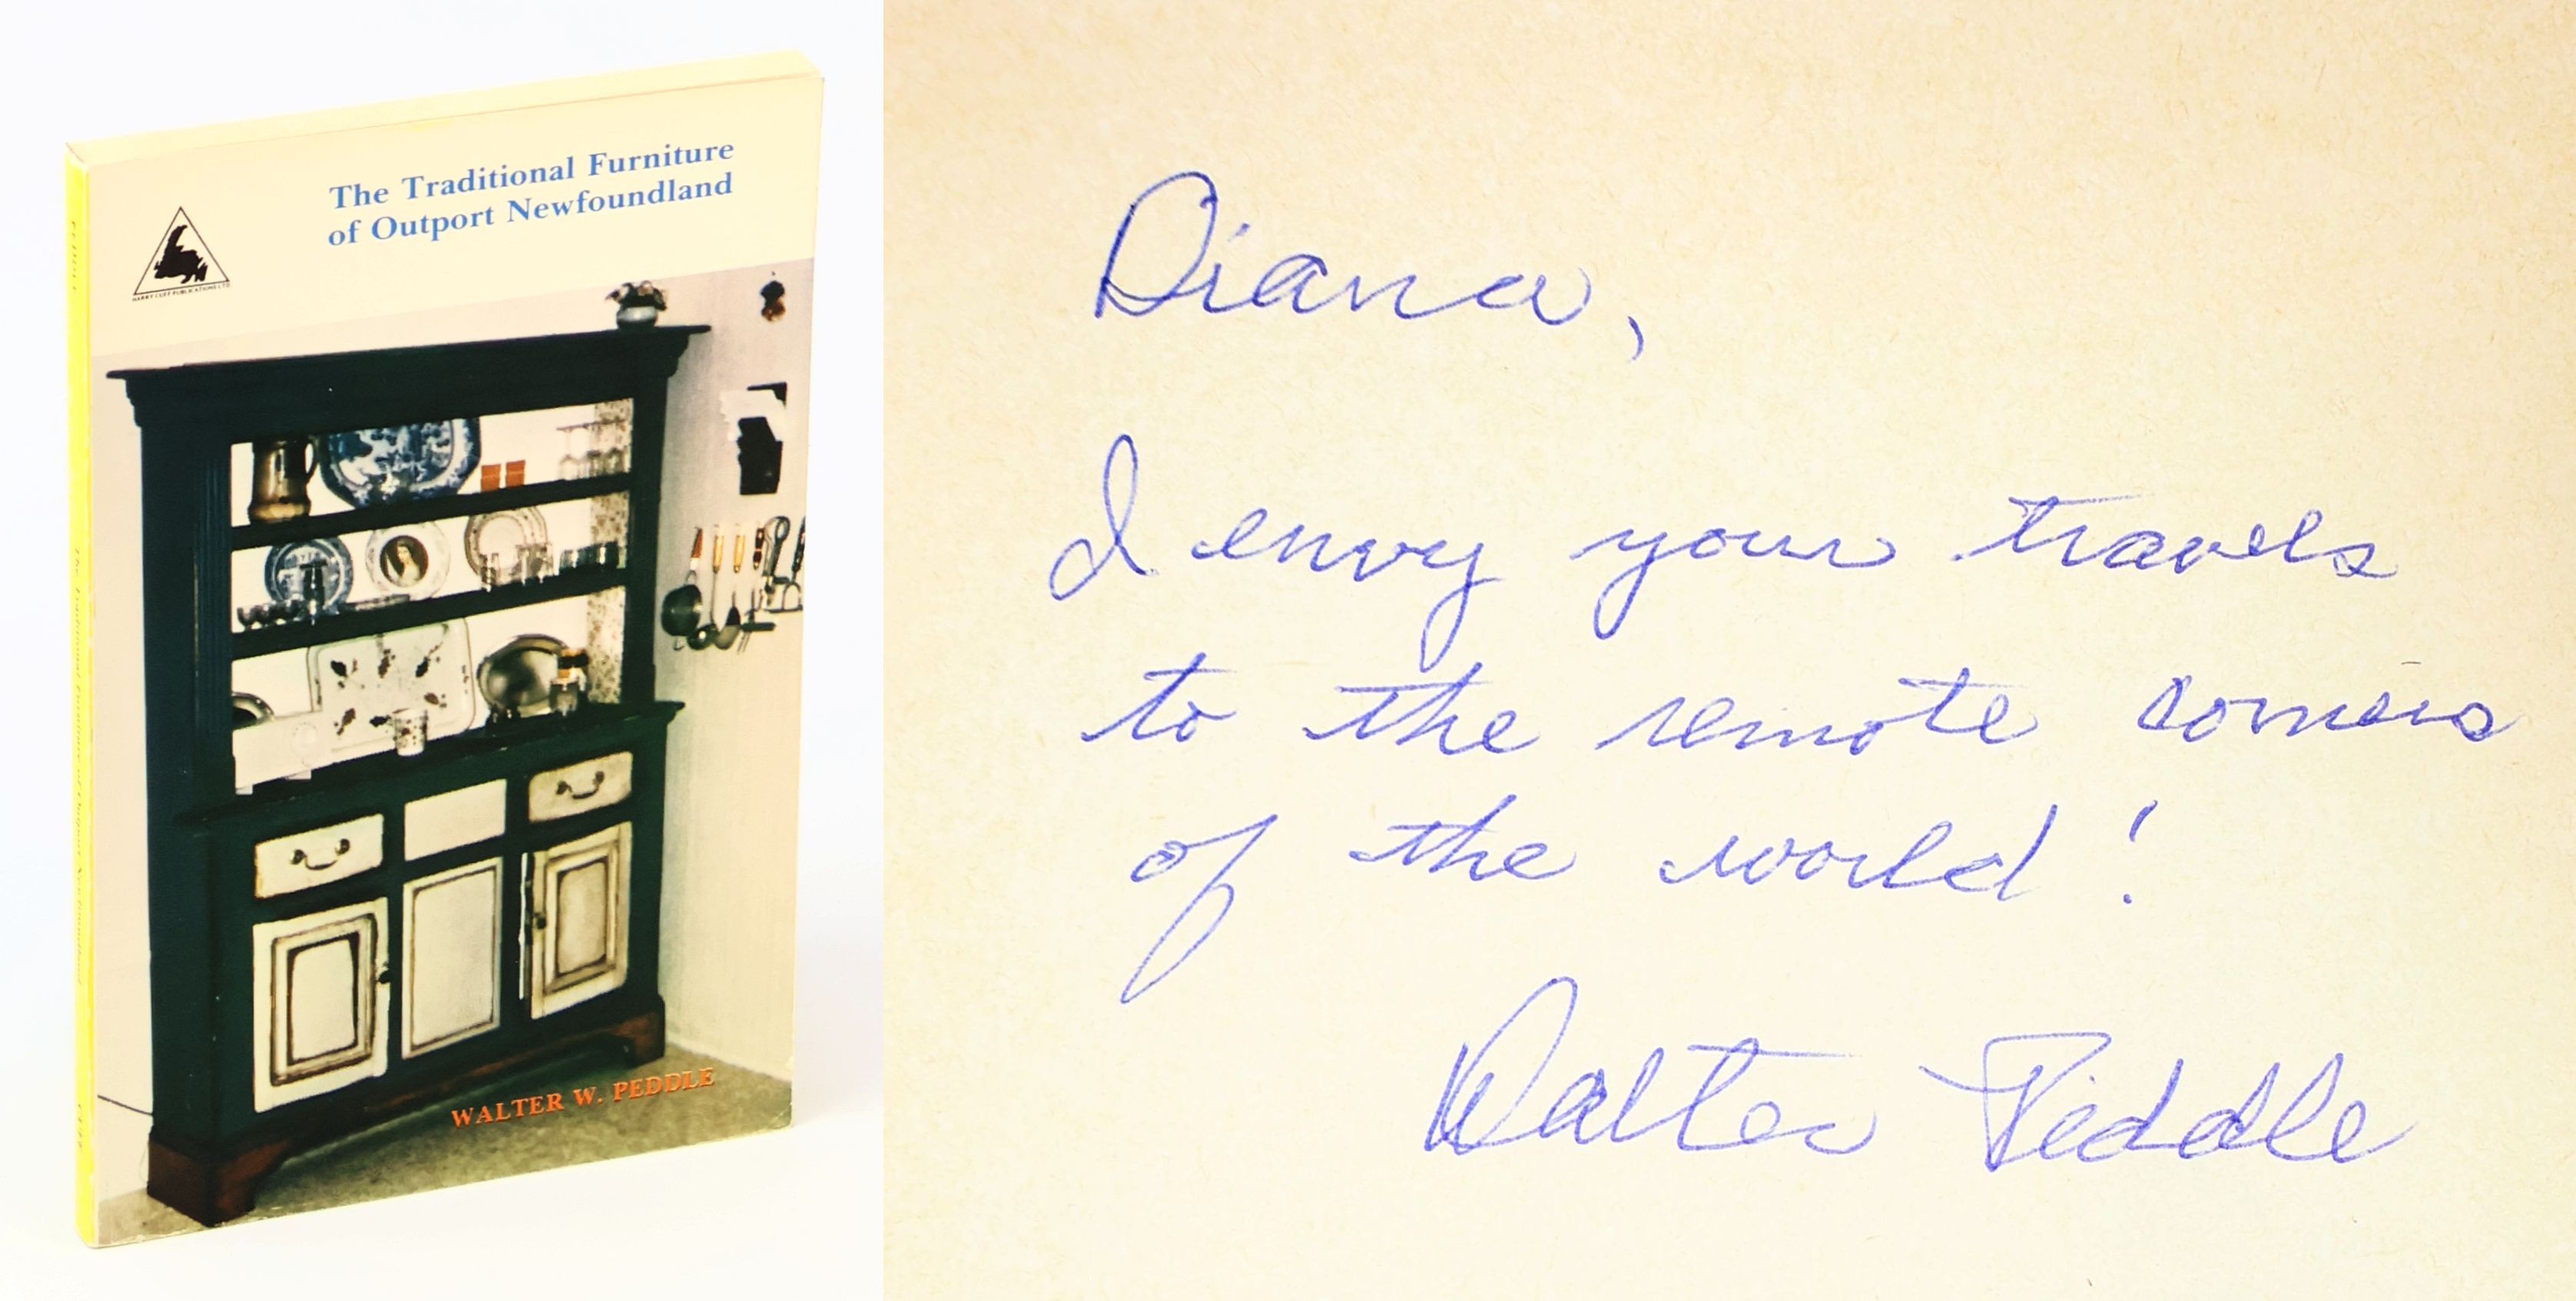 The Traditional Furniture
of Outport Newfoundland
HARRY CUFF PUBLICATIONS LTD
WALTER W. PEDDLE
PEDDLE
The Traditional Furniture of Outport Newfoundland
Diana,
I envy your travels
to the remote corners
of the world!
Walter Peddle